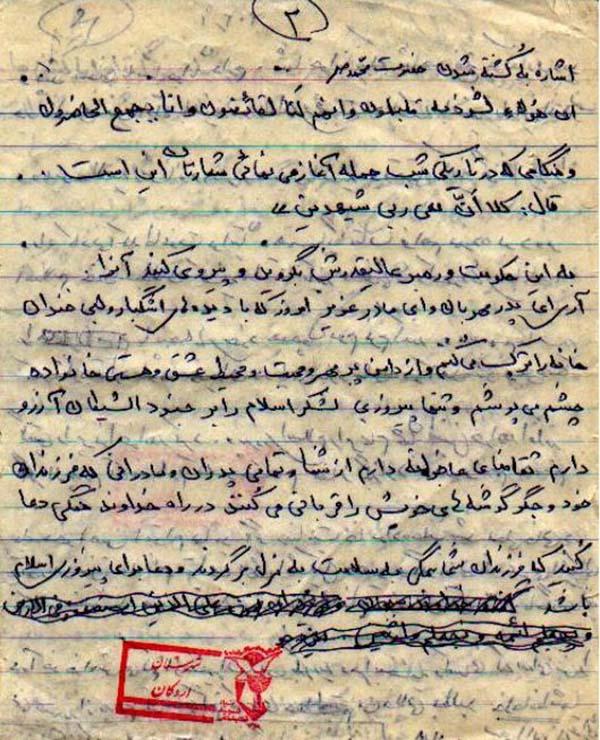 ۲
اشاره به کشته شدن حضرت محمد ص
ان هؤلاء لشرذمه قلیلون وانهم لنا لغائضون وانا بجمع الحاضرون
و هنگامی که در تاریکی شب حمله آغاز می نمائی شعارتان این است . .
قال: کلا ان معی ربی سیهدین
به این حکومت و رهبر عالیقدرش بگروین و پیروی کنید آنرا
آری ای پدر مهربان وای مادر عزیز امروز که با دیده ای اشگبار و لبی خندان
خانه را ترک می کنم و از دامن پر مهر و محبت و محیط عشق و هستی خانواده
چشم می پوشم و تنها پیروزی لشکر اسلام را بر جنود الشیطان آرزو
دارم تقاضای عاجزانه دارم از شما و تمامی پدران و مادرانی که فرزندان
خود و جگر گوشه های خویش را قربانی می کنند در راه خداوند همگی دعا
کنید که فرزندان شما همگی به سلامت به منزل برگردند و دعا برای پیروزی اسلام
باشد
شهرستان
اردکان